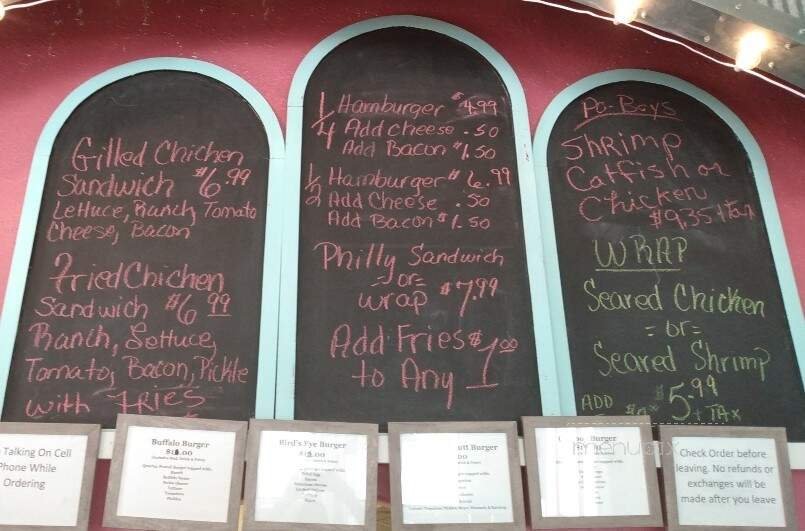 Gilled Chicken
Sandwich $6.99
Lettuce, Ranch, Tomato
Cheese, Bacon
Fried Chicken
Sandwich $6.99
Ranch, Lettuce,
Tomato, Bacon, Pickle
with FRIES
1/4 Hamburger $4.99
Add Cheese .50
Add Bacon $1.50
1/2 Hamburger $6.99
Add Cheese .50
Add Bacon $1.50
Philly Sandwich
=or=
wrap $7.99
Add Fries $1.00
to Any
Po-Boys
Shrimp
Catfish or
Chicken
$9.35 + Tax
WRAP
Seared Chicken
=or=
Seared Shrimp
$5.99
ADD + TAX
Talking On Cell
Phone While
Ordering
Buffalo Burger
Bird's Eye Burger
Burger
Burger
menupix
Check Order before
leaving. No refunds or
exchanges will be
made after you leave